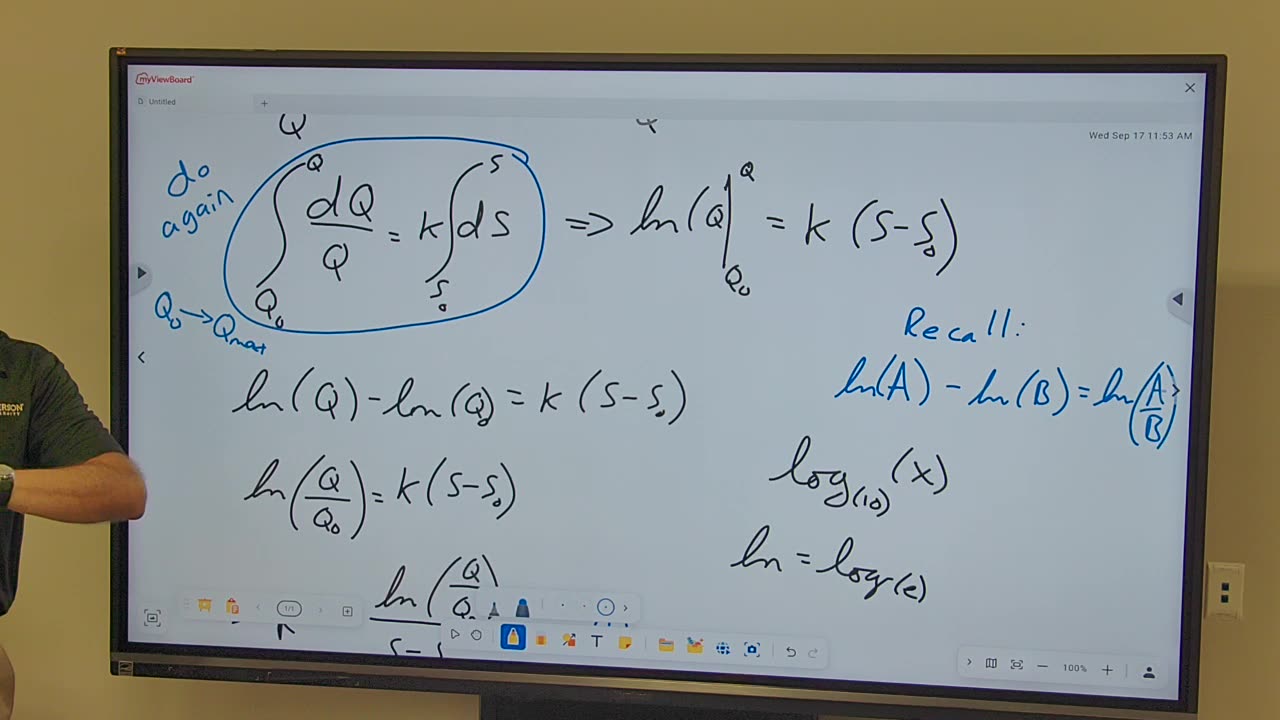 myViewBoard
Untitled
+
Wed Sep 17 11:53 AM
Q
do again
∫_{Q₀}^{Q} dQ/Q = k ∫_{S₀}^{S} dS ⇒ ln(Q|_{Q₀}^{Q} = k (S-S₀)
Q₀ → Qmax
Recall:
ln(A) - ln(B) = ln(A/B)
ln(Q) - ln(Q₀) = k (S-S₀)
log₍₁₀₎(x)
ln(Q/Q₀) = k(S-S₀)
ln = log(e)
ln(Q/Q₀)
S-S
1/1
T
100%
ERSON